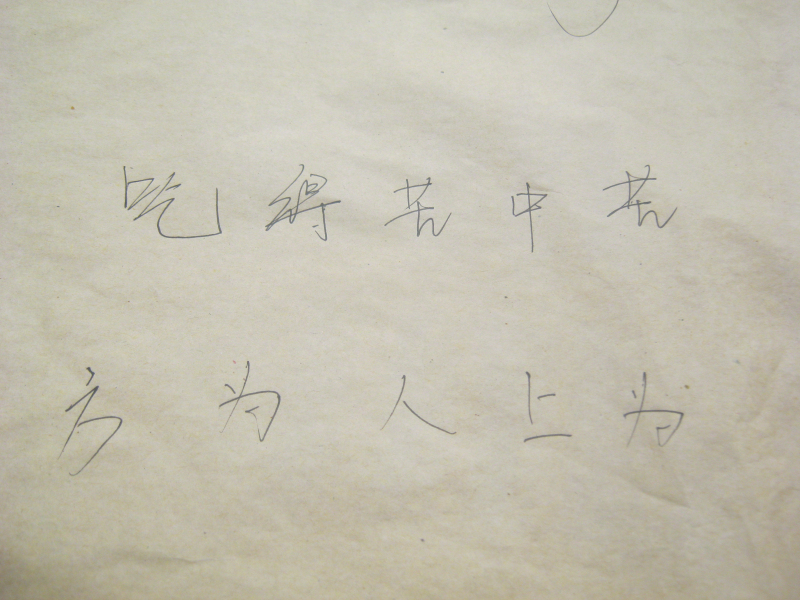 吃得苦中苦
方为人上为